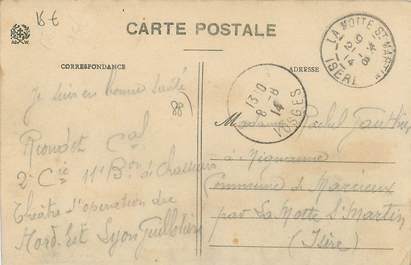 15€
CARTE POSTALE
CORRESPONDANCE
ADRESSE
LA MOTTE ST MARTIN
ISÈRE
13 10
8 - 8
14
VOSGES
Je suis en bonne santé
Riondet Cal
2e Cie 11e Bon de Chasseurs
Théâtre d'opération du
Nord Est Lyon Guillotière
Madame Gauthier
à
Commune de
par La Motte St Martin
(Isère)